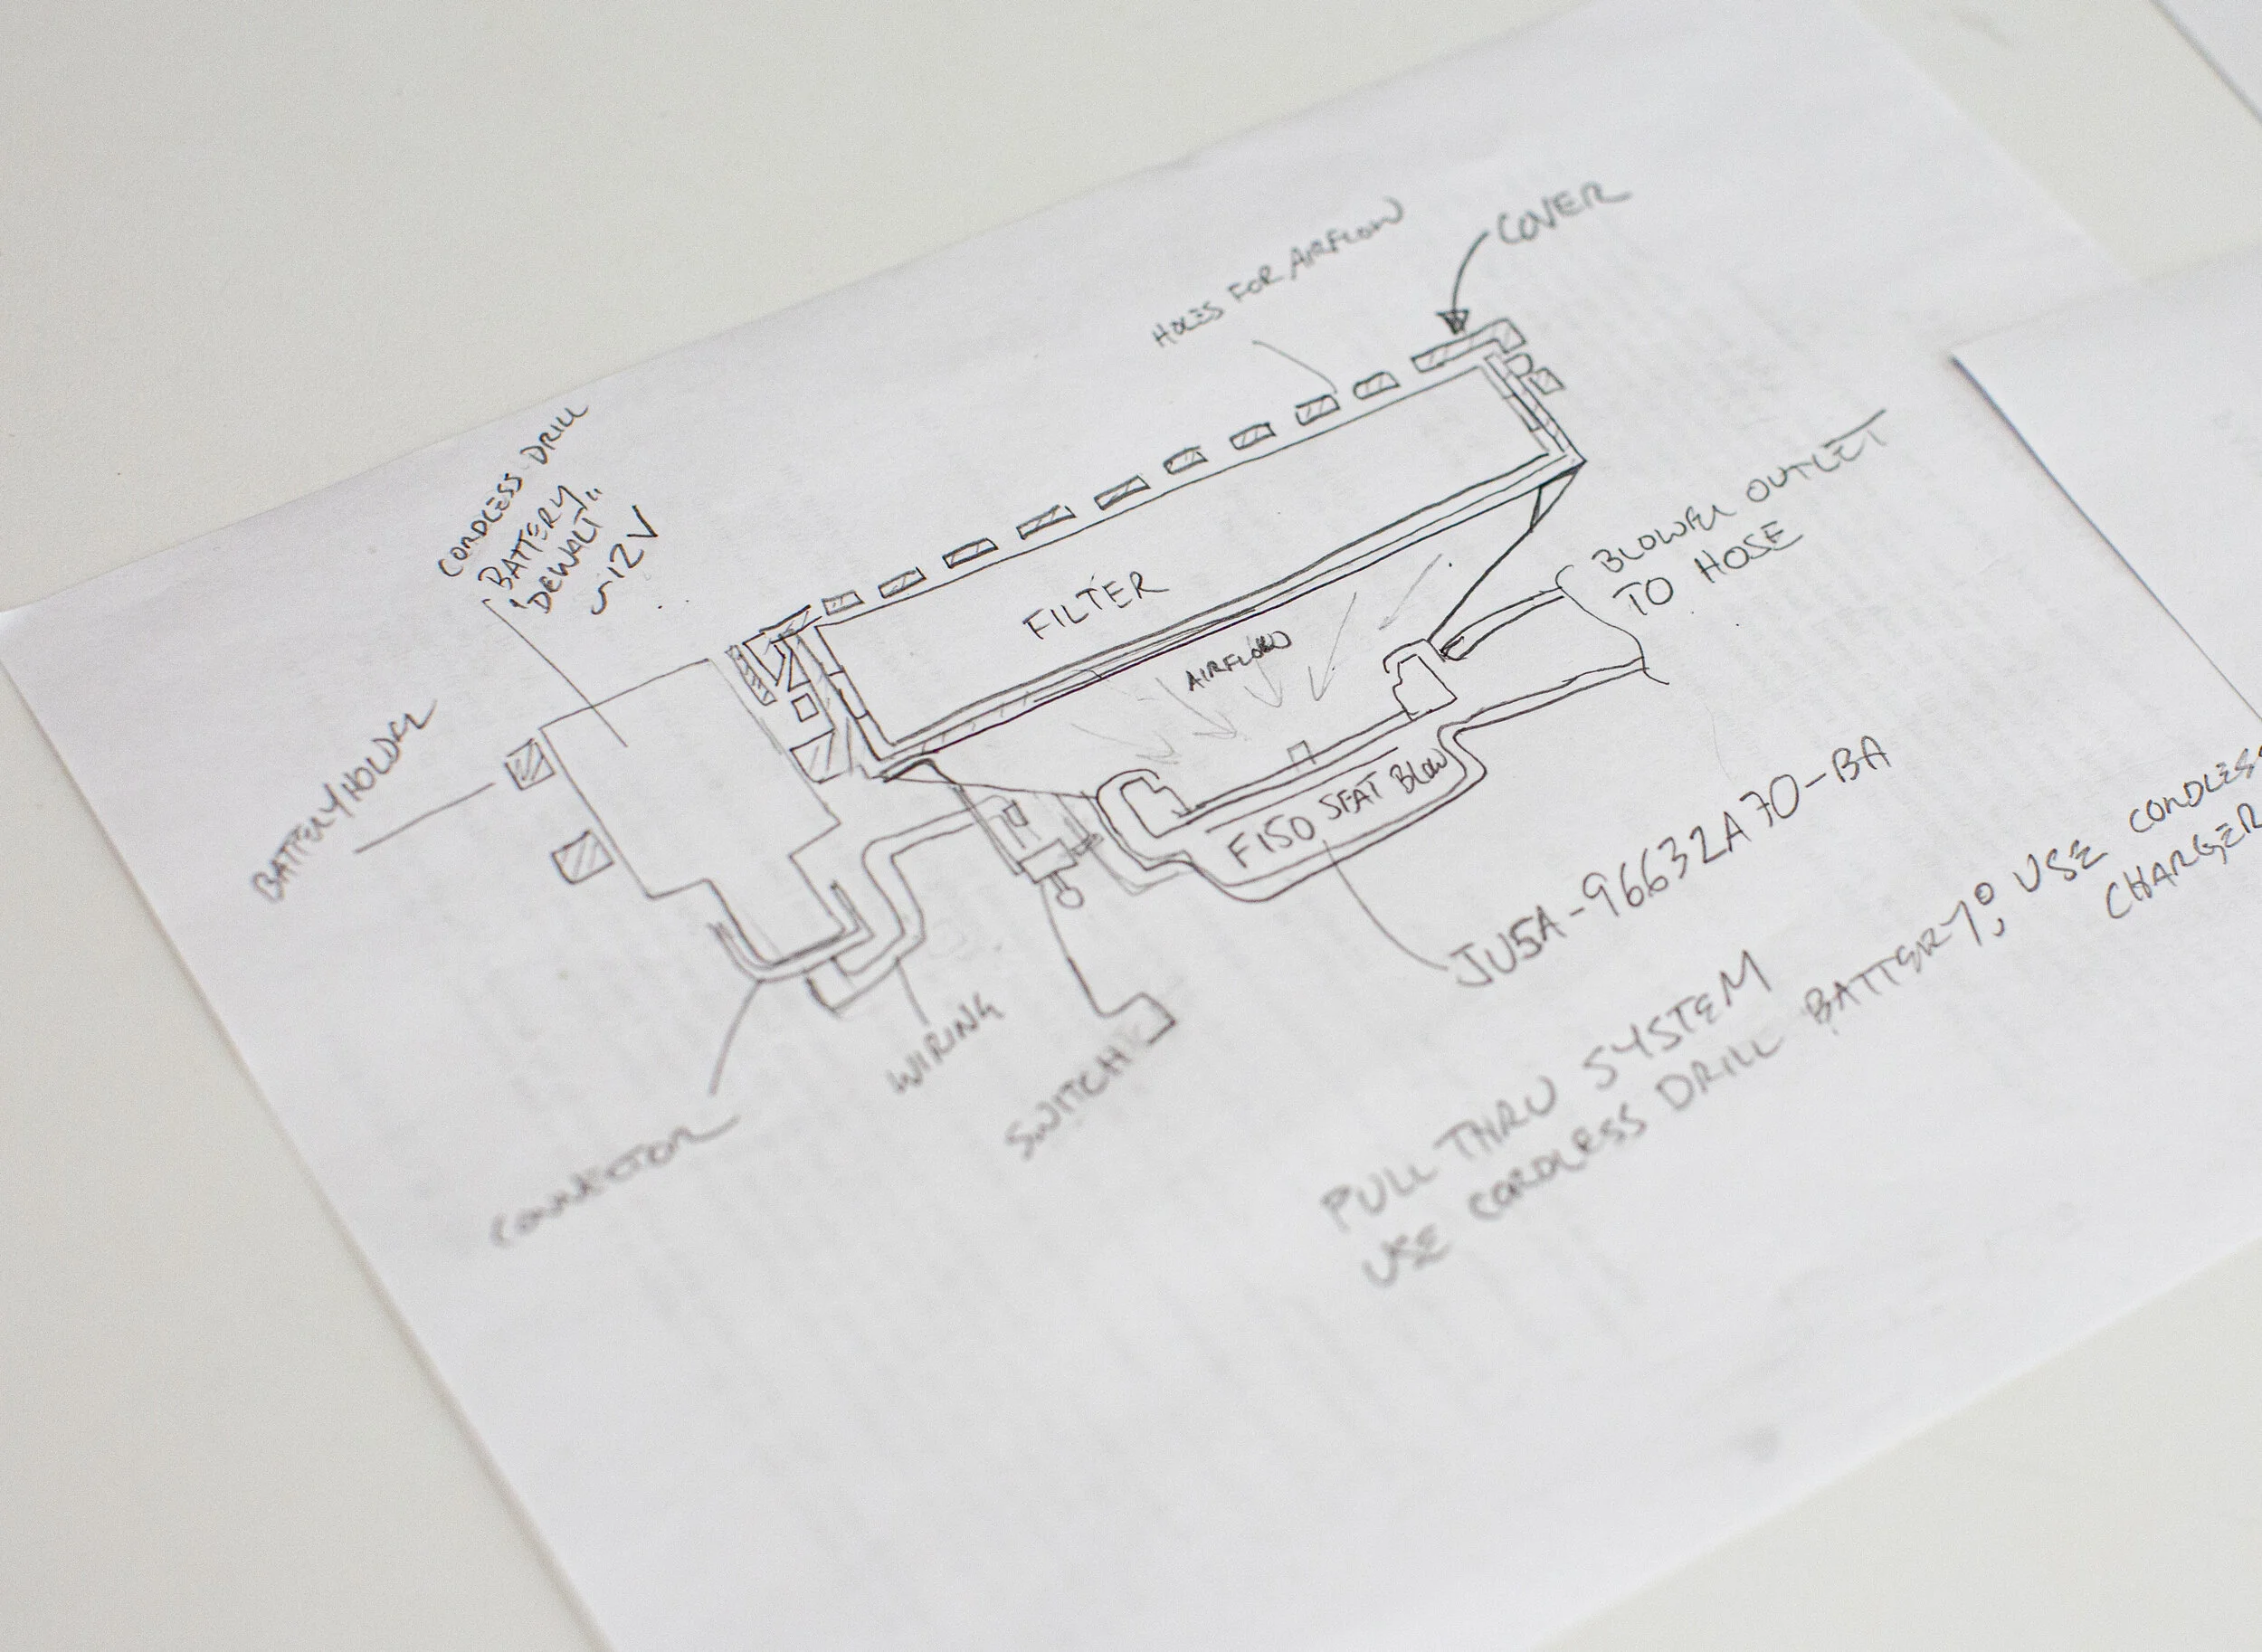 COVER
HOLES FOR AIRFLOW
CORDLESS DRILL
BATTERY
"DEWALT"
~12V
BLOWER OUTLET
TO HOSE
FILTER
AIRFLOW
BATTERY HOLDER
F150 SEAT BLOW
JU5A-96632A70-BA
WIRING
SWITCH
CONNECTOR
PULL THRU SYSTEM
USE CORDLESS DRILL BATTERY; USE CORDLESS
CHARGER